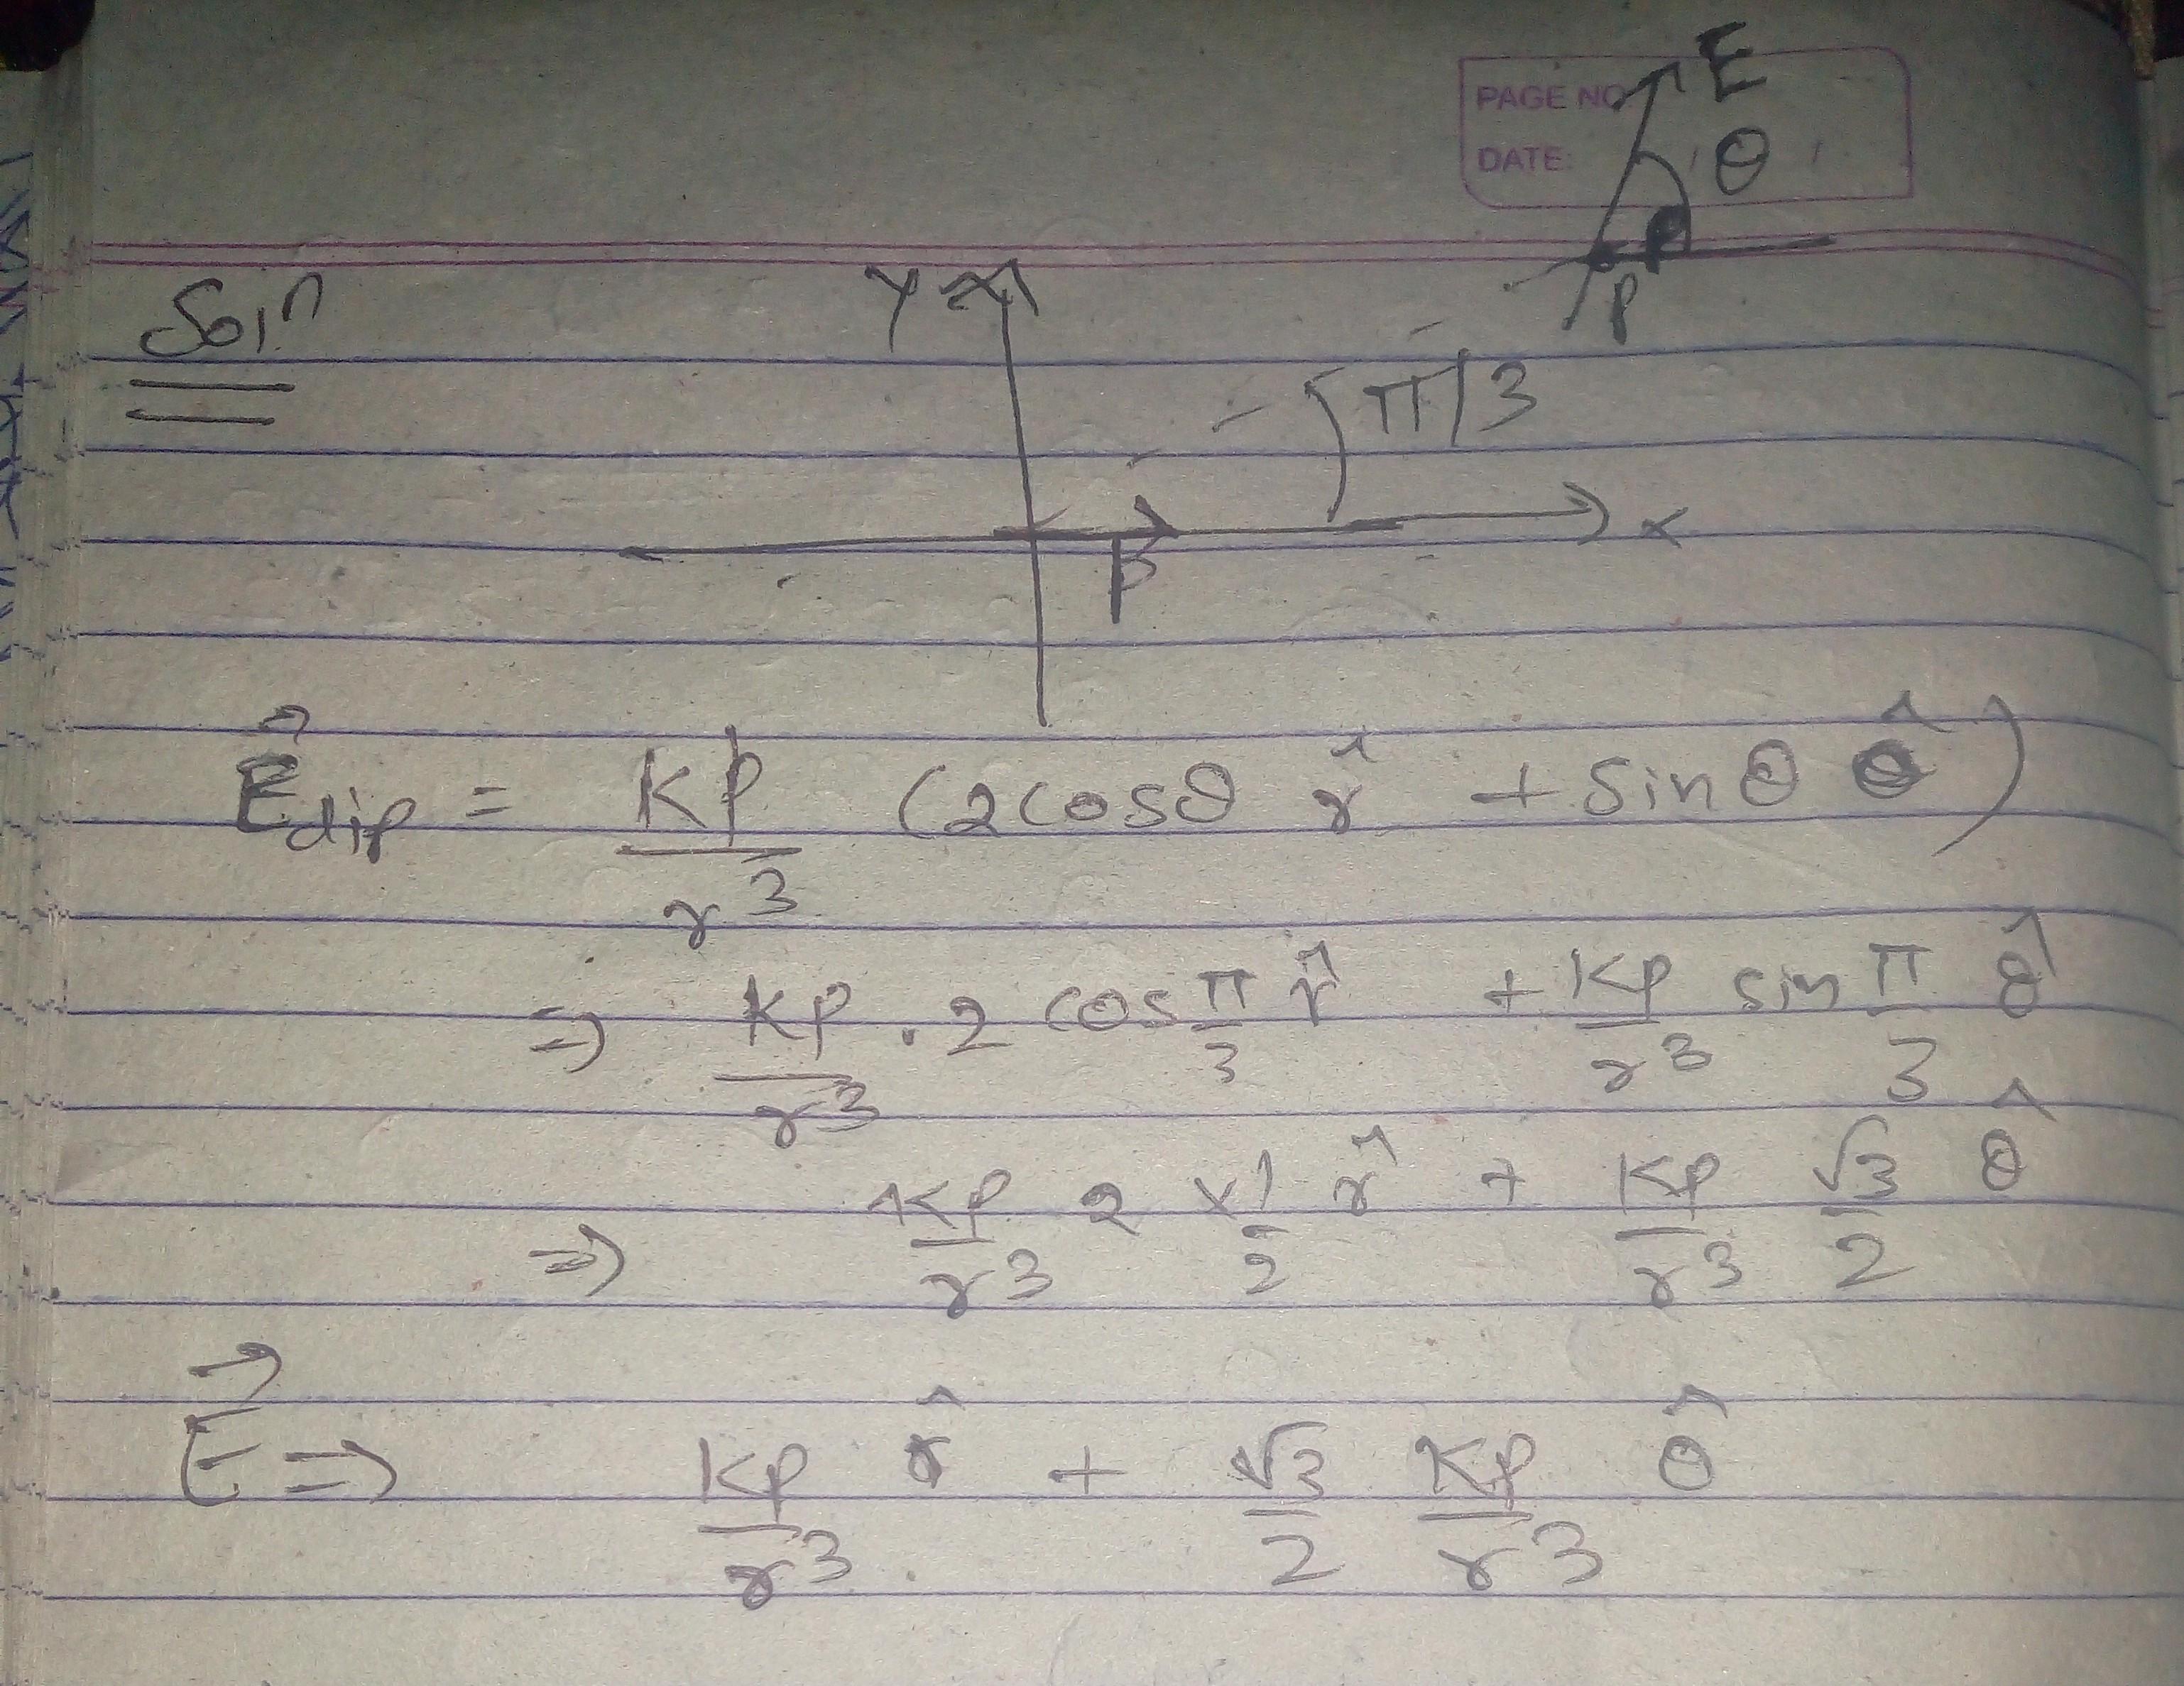 PAGE NO
DATE:
E
θ
P
P
Solⁿ
Y
π/3
x
P
E⃗dip = KP/r³ (2cosθ r̂ + Sinθ θ̂)
⇒ KP/r³ . 2 cos π/3 r̂ + KP/r³ sin π/3 θ̂
⇒ KP/r³ 2 × 1/2 r̂ + KP/r³ √3/2 θ̂
E⃗ ⇒ KP/r³ r̂ + √3/2 KP/r³ θ̂